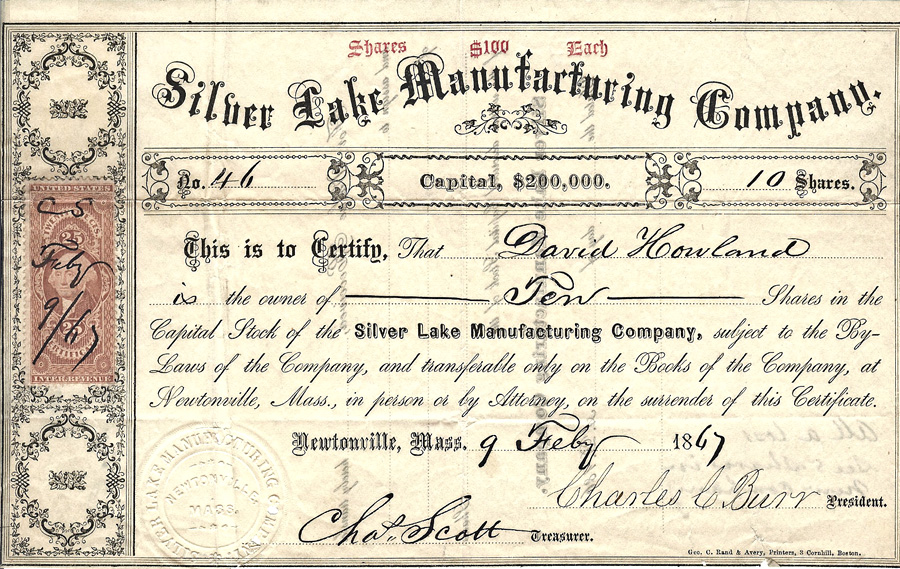 Shares $100 Each
Silver Lake Manufacturing Company.
No. 46
Capital, $200,000.
10 Shares.
This is to Certify, That David Howland
is the owner of Ten Shares in the
Capital Stock of the Silver Lake Manufacturing Company, subject to the By-
Laws of the Company, and transferable only on the Books of the Company, at
Newtonville, Mass., in person or by Attorney, on the surrender of this Certificate.
Newtonville, Mass. 9 Feby 1867
Charles C Burr President.
Chas. Scott Treasurer.
Geo. C. Rand & Avery, Printers, 3 Cornhill, Boston.
UNITED STATES
CS
25
Feby
9/67
25
INTER. REVENUE
SILVER LAKE MANUFACTURING COMPANY
NEWTONVILLE,
MASS.